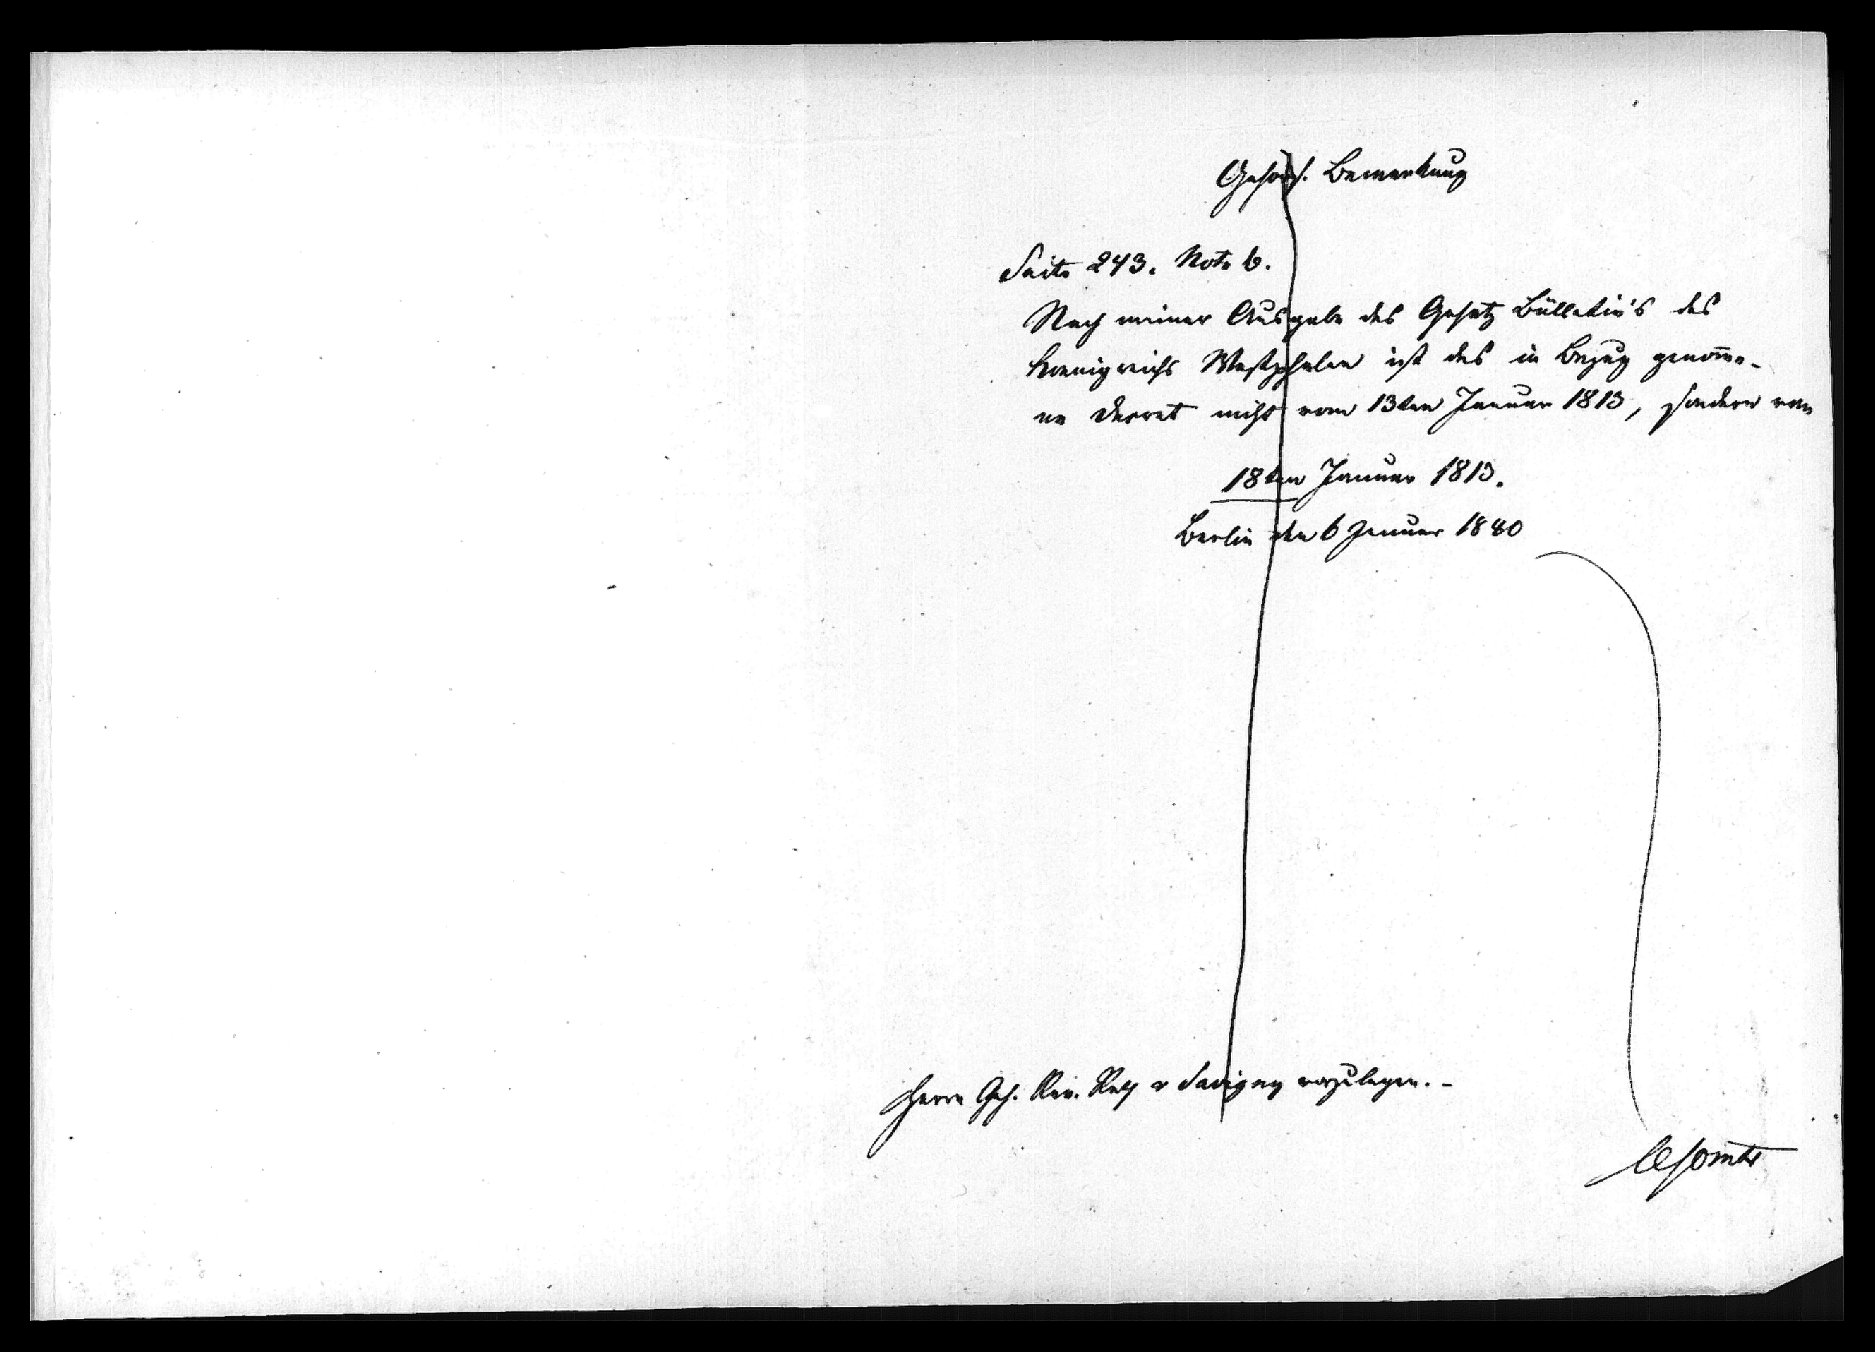 Gehors. Bemerkung
Seite 243. Note b.
Nach meiner Ausgabe des Gesetz Bülletin's des
Koenigreichs Westphalen ist das in Bezug genom̅e-
ne Decret nicht vom 13ten Januar 1813, sondern vom
18ten Januar 1813.
Berlin den 6 Januar 1840
Herrn Geh. Rev. Rath v Savigny vorzulegen. -